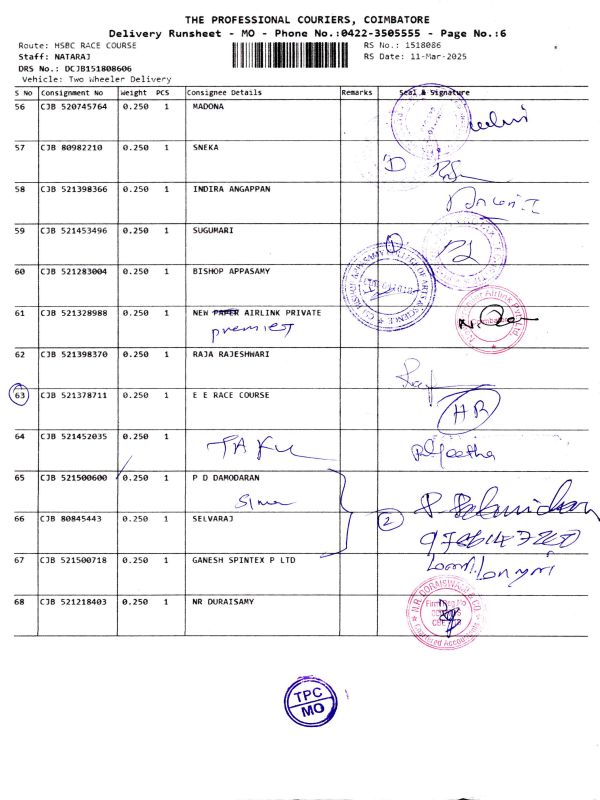 THE PROFESSIONAL COURIERS, COIMBATORE
Delivery Runsheet - MO - Phone No.:0422-3505555 - Page No.:6
Route: HSBC RACE COURSE
RS No.: 1518086
Staff: NATARAJ
RS Date: 11-Mar-2025
DRS No.: DCJB151808606
Vehicle: Two Wheeler Delivery
S No Consignment No Weight PCS Consignee Details Remarks Seal & Signature
56 CJB 520745764 0.250 1 MADONA
57 CJB 80982210 0.250 1 SNEKA
58 CJB 521398366 0.250 1 INDIRA ANGAPPAN
59 CJB 521453496 0.250 1 SUGUMARI
60 CJB 521283004 0.250 1 BISHOP APPASAMY
61 CJB 521328988 0.250 1 NEW PAPER AIRLINK PRIVATE
premiest
62 CJB 521398370 0.250 1 RAJA RAJESHWARI
63 CJB 521378711 0.250 1 E E RACE COURSE
HR
64 CJB 521452035 0.250 1
65 CJB 521500600 0.250 1 P D DAMODARAN
66 CJB 80845443 0.250 1 SELVARAJ
2
67 CJB 521500718 0.250 1 GANESH SPINTEX P LTD
68 CJB 521218403 0.250 1 NR DURAISAMY
TPC
MO